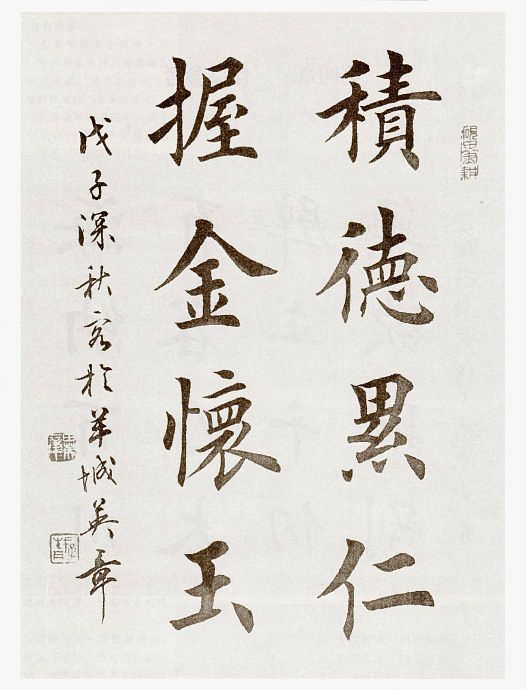 積德累仁
握金懷玉
戊子深秋客於羊城英章